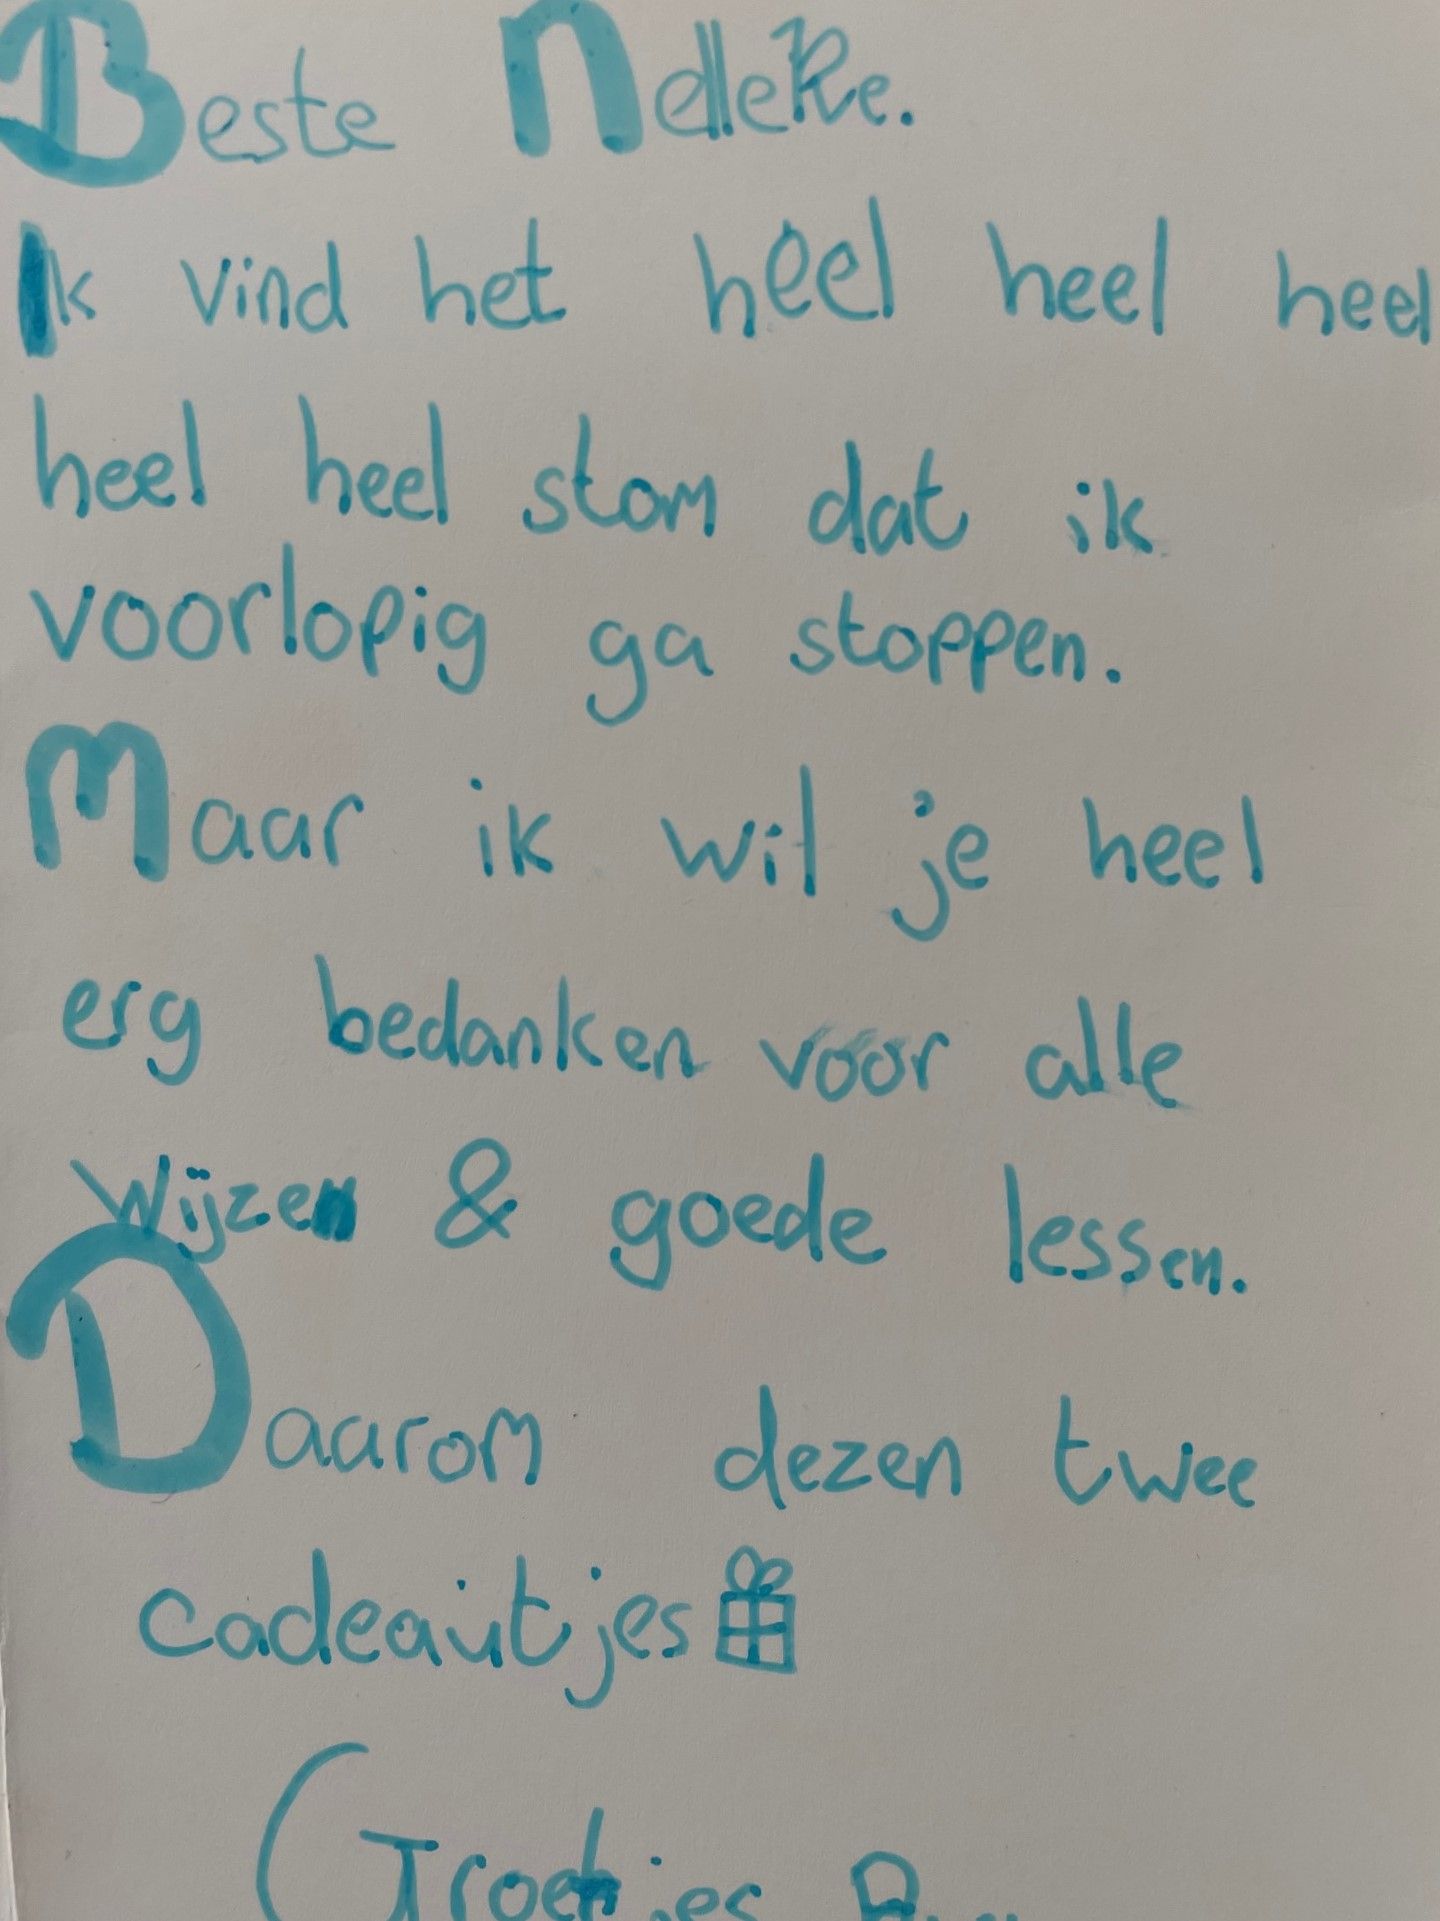 Beste Nelleke.
Ik vind het heel heel heel
heel heel stom dat ik
voorlopig ga stoppen.
Maar ik wil je heel
erg bedanken voor alle
wijzen & goede lessen.
Daarom dezen twee
cadeautjes
Groetjes